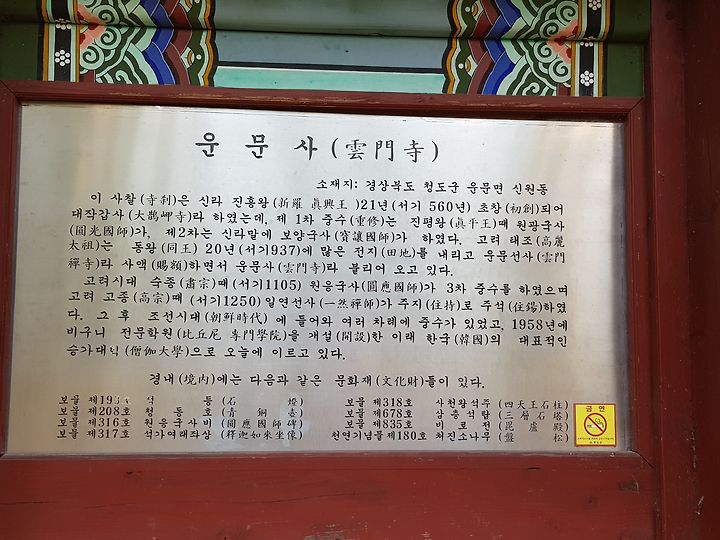 운 문 사 (雲門寺)
소재지: 경상북도 청도군 운문면 신원동
이 사찰(寺刹)은 신라 진흥왕(新羅 眞興王 )21년(서기 560년) 초창(初創)되어
대작갑사(大鵲岬寺)라 하였는데, 제 1차 중수(重修)는 진평왕(眞平王)때 원광국사
(圓光國師)가, 제2차는 신라말에 보양국사(寶讓國師)가 하였다. 고려 태조(高麗
太祖)는 동왕(同王) 20년(서기937)에 많은 전지(田地)를 내리고 운문선사(雲門
禪寺)라 사액(賜額)하면서 운문사(雲門寺)라 불리어 오고 있다.
고려시대 숙종(肅宗)때(서기1105) 원응국사(圓應國師)가 3차 중수를 하였으며
고려 고종(高宗)때 (서기1250)일연선사(一然禪師)가 주지(住持)로 주석(住錫)하였
다. 그 후 조선시대(朝鮮時代) 에 들어와 여러 차례에 중수가 있었고, 1958년에
비구니 전문학원(比丘尼 專門學院)을 개설(開設)한 이래 한국(韓國)의 대표적인
승가대학(僧伽大學)으로 오늘에 이르고 있다.
경내(境內)에는 다음과 같은 문화재(文化財)들이 있다.
보물 제193호 석 등 (石 燈)
보물 제208호 청 동 호 (青 銅 壺)
보물 제316호 원응국사비 (圓應國師碑)
보물 제317호 석가여래좌상 (釋迦如來坐像)
보물 제318호 사천왕석주 (四天王石柱)
보물 제678호 삼층석탑 (三層石塔)
보물 제835호 비로전 (毘盧殿)
천연기념물 제180호 처진소나무 (盤 松)
금 연